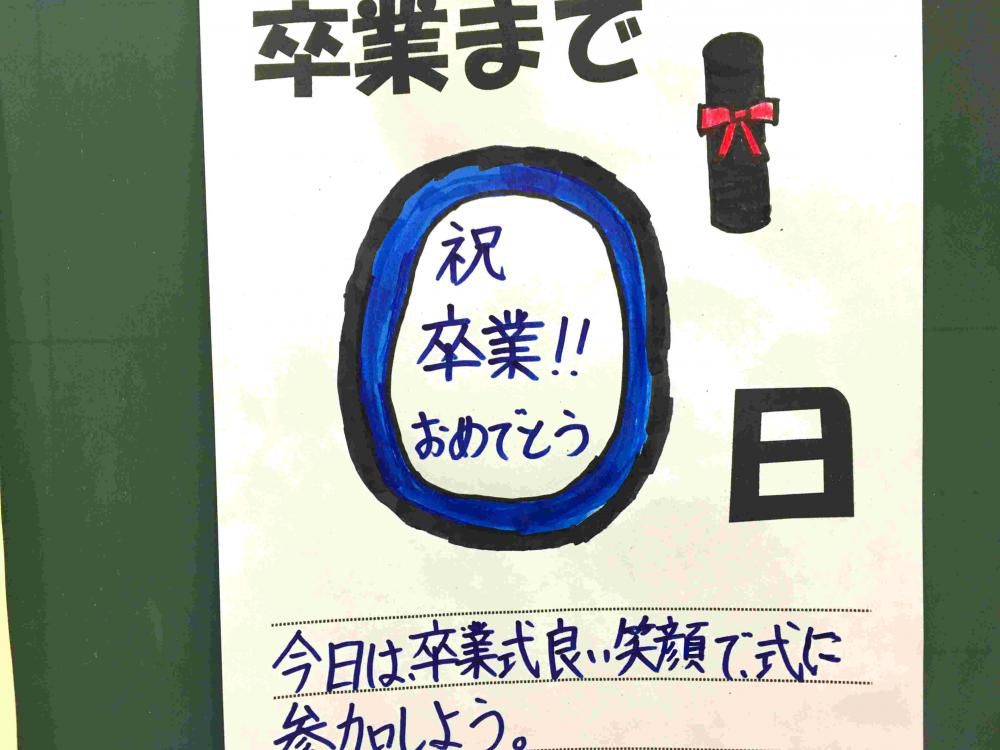 卒業まで
0
祝
卒業!!
おめでとう
日
今日は、卒業式良い笑顔で、式に
参加しよう。